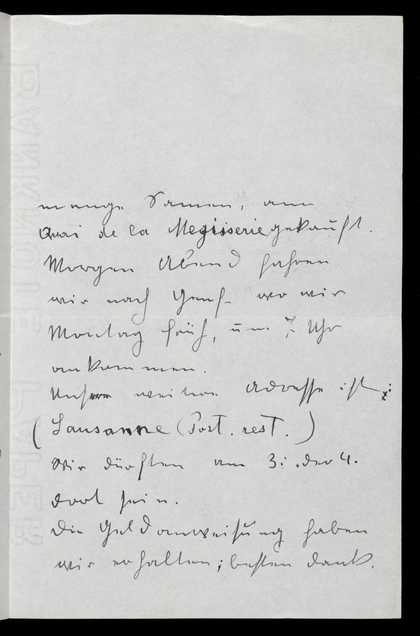 menge Samen, am
Quai de la Megisserie gekauft.
Morgen Abend fahren
wir nach Genf wo wir
Montag früh, um 7. Uhr
ankommen.
Unsere weitere Adresse ist:
(Lausanne (Post. rest.)
Wir dürften am 3. oder 4.
dort sein.
Die Geldanweisung haben
wir erhalten; besten Dank.